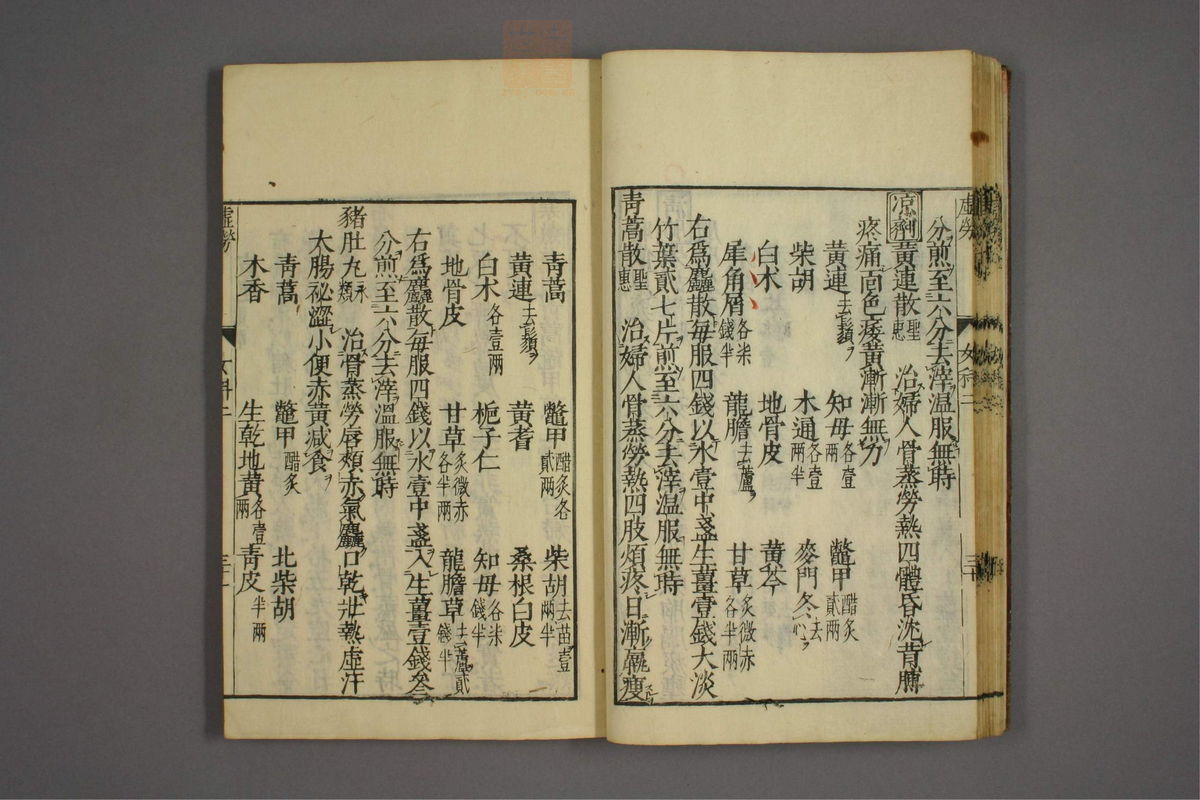 虛勞 女科二 三十
分煎至六分去滓溫服無時
凉劑 黃連散 聖惠 治婦人骨蒸勞熱四體昏沈背膊
疼痛面色痿黃漸漸無力
黃連 去鬚 知母 各壹兩 鼈甲 醋炙貳兩
柴胡 木通 各壹兩半 麥門冬 去心
白朮 地骨皮 黃芩
犀角屑 各柒錢半 龍膽 去蘆 甘草 炙微赤各半兩
右爲麤散每服四錢以水壹中盞生薑壹錢大淡
竹葉貳七片煎至六分去滓溫服無時
靑蒿散 聖惠 治婦人骨蒸勞熱四肢煩疼日漸羸瘦
靑蒿 鼈甲 醋炙各貳兩 柴胡 去苗壹兩半
黃連 去鬚 黃耆 桑根白皮
白朮 各壹兩 梔子仁 知母 各柒錢半
地骨皮 甘草 炙微赤各半兩 龍膽草 去蘆貳錢半
右爲麤散每服四錢以水壹中盞入生薑壹錢叄
分煎至六分去滓溫服無時
豬肚丸 永類 治骨蒸勞唇頰赤氣麤口乾壯熱虛汗
大腸祕澀小便赤黃減食
靑蒿 鼈甲 醋炙 北柴胡
木香 生乾地黃 各壹兩 靑皮 半兩
虛勞 女科二